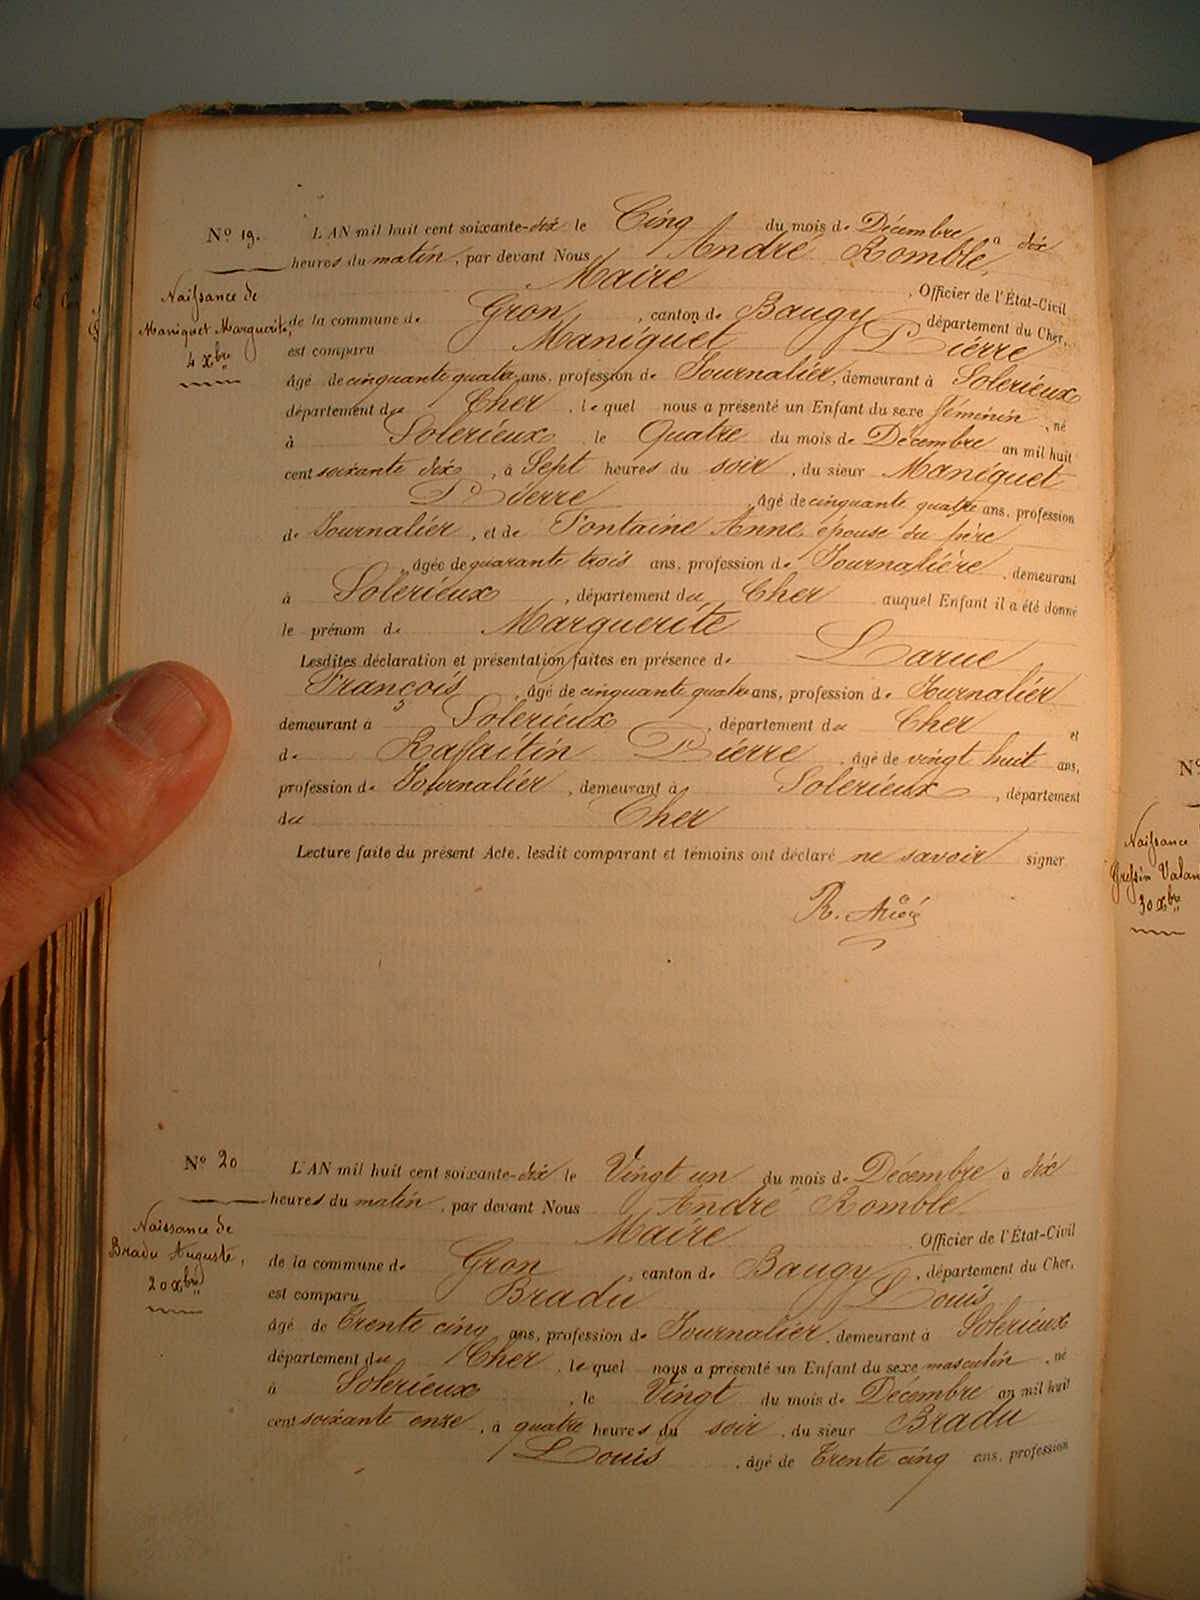 Nº 19.
L'AN mil huit cent soixante-dix le Cinq du mois de Décembre à dix
heures du matin, par devant Nous André Romble,
Maire, Officier de l'État-Civil
Naissance de
Maniquet Marguerite,
4 Xbre
de la commune de Gron, canton de Baugy, département du Cher,
est comparu Maniquet Pierre
âgé de cinquante quatre ans, profession de Journalier, demeurant à Solerieux
département du Cher, lequel nous a présenté un Enfant du sexe féminin, né
à Solerieux, le Quatre du mois de Décembre an mil huit
cent soixante dix, à Sept heures du soir, du sieur Maniquet
Pierre, âgé de cinquante quatre ans, profession
de Journalier, et de Fontaine Anne, épouse du père
, âgée de quarante trois ans, profession de Journalière, demeurant
à Solerieux, département du Cher auquel Enfant il a été donné
le prénom de Marguerite
Lesdites déclaration et présentation faites en présence de Larue
François, âgé de cinquante quatre ans, profession de Journalier
demeurant à Solerieux, département du Cher et
de Raffaitin Pierre, âgé de vingt huit ans,
profession de Journalier, demeurant à Solerieux, département
du Cher
Lecture faite du présent Acte, lesdit comparant et témoins ont déclaré ne savoir signer
Nº 20
L'AN mil huit cent soixante-dix le Vingt un du mois de Décembre à dix
heures du matin, par devant Nous André Romble
Maire, Officier de l'État-Civil
Naissance de
Bradu Auguste,
20 Xbre
de la commune de Gron, canton de Baugy, département du Cher,
est comparu Bradu Louis
âgé de Trente cinq ans, profession de Journalier, demeurant à Solerieux
département du Cher, lequel nous a présenté un Enfant du sexe masculin, né
à Solerieux, le Vingt du mois de Décembre an mil huit
cent soixante onze, à quatre heures du soir, du sieur Bradu
Louis, âgé de Trente cinq ans, profession
Nº
Naissance
30 Xbre